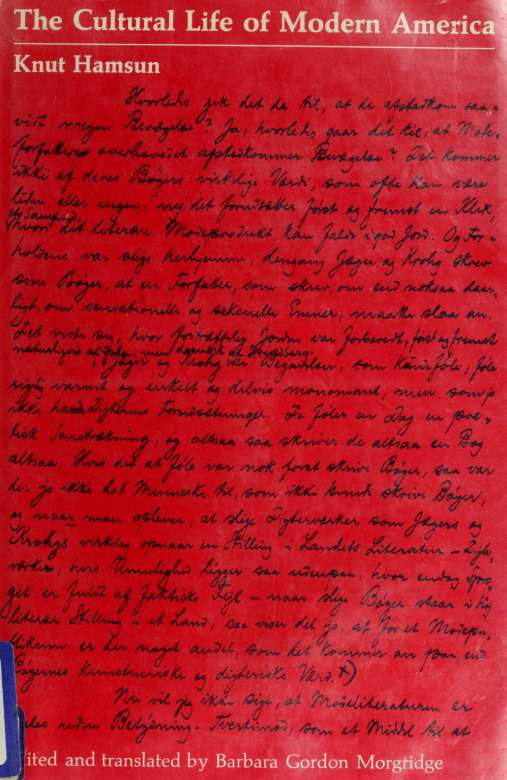 The Cultural Life of Modern America
Knut Hamsun
Hvorledes gik det da til, at de afstedkom saa-
vidt megen Bevægelse? Ja, hvorledes gaar det til, at Mode-
forfattere overhovedet afstedkommer Bevægelse? Det kommer
ikke af deres Bøgers virkelige Værdi, som ofte kan være
liden eller ingen; nej, det forudsætter først og fremst en Klik,
et Samfund,
hvori det literære Modeprodukt kan falde i god Jord. Og For-
holdene var slige herhjemme, dengang Jæger og Krohg skrev
sine Bøger, at en Forfatter, som skrev, om end noksaa daar-
ligt, om sensationelle og seksuelle Emner, maatte slaa an.
Det viste sig, hvor fortræffelig Jorden var forberedt, først og fremst
naturligvis af
Jæger og Krohg som føle
rigtig varmt og enkelt og delvis monomant, men som jo
ikke har Digterens Forudsætninger. De føler en Dag en poe-
tisk og altsaa saa skriver de altsaa en Bog
altsaa. Hvis det at føle var nok forat skrive Bøger, saa var
der jo ikke det Menneske til, som ikke kunde skrive Bøger,
og naar man oplever, at slige Digterværker som Jægers og
Krohgs virkelig opnaar en Stilling i Landets Literatur – Digter-
værker, hvis Umulighed ligger saa udenpaa, hvor endog Spro-
get er fuldt af faktiske Fejl – naar slige Bøger staar i høj
literær Stilling i et Land, saa viser det jo, at for et Modepu-
blikum er der noget andet, som det kommer an paa, end
Bøgernes kunstneriske og digteriske Værd. x)
Nu vil jeg ikke sige, at Modeliteraturen er
uden Betydning. Tvertimod, som et Middel til at
ited and translated by Barbara Gordon Morgridge